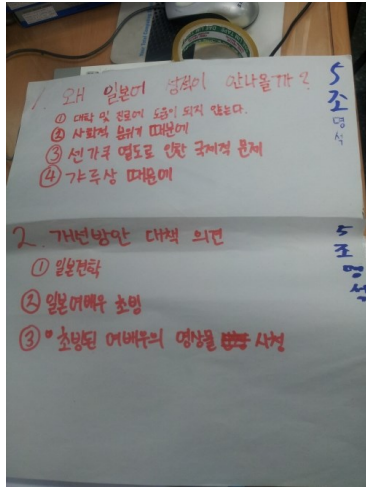 1. 왜 일본어 성적이 안나올까?
① 대학 및 진로에 도움이 되지 않는다.
② 사회적 분위기 때문에
③ 센가쿠 열도로 인한 국제적 문제
④ 갸루상 때문에
5조
명석
2. 개선방안 대책 의견
① 일본견학
② 일본여배우 초빙
③ 초빙된 여배우의 영상물 시청
5조
명석